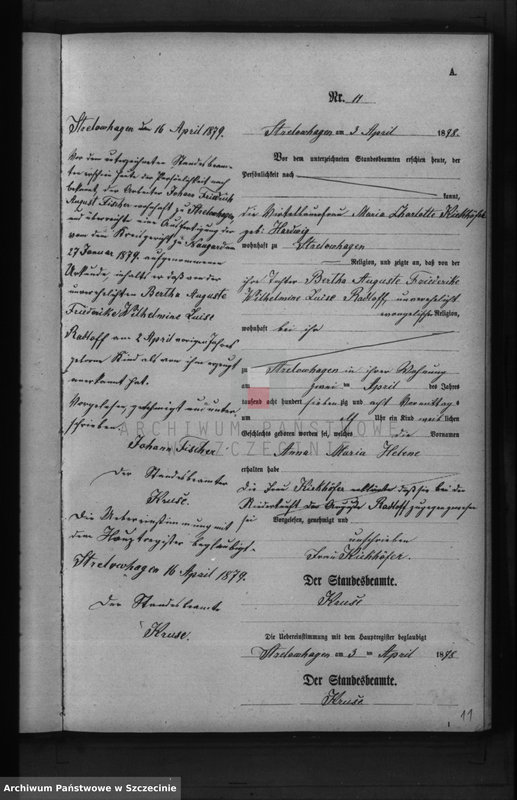 A.
Nr. 11
Strelowhagen am 3 April 1878.
Vor dem unterzeichneten Standesbeamten erschien heute, der
Persönlichkeit nach
kannt,
die Maria Charlotte Kickhöfer
geb: Hardwig
wohnhaft zu Strelowhagen
Religion, und zeigte an, daß von der
ihre Tochter Bertha Auguste Friederike
Wilhelmine Luise Radloff, unverehelicht
evangelischer Religion,
wohnhaft bei ihr
zu Strelowhagen in ihrer Wohnung
am zwei ten April des Jahres
tausend acht hundert siebenzig und acht Vormittags
um elf Uhr ein Kind weiblichen
Geschlechts geboren worden sei, welches die Vornamen
Anna Maria Helene
erhalten habe
Die Frau Kickhöfer erklärte daß sie bei der
Niederkunft der Auguste Radloff zugegen gewesen
sei
Vorgelesen, genehmigt und
unterschrieben
Frau Kickhöfer.
Der Standesbeamte.
Kruse
Die Uebereinstimmung mit dem Hauptregister beglaubigt
Strelowhagen am 3 ten April 1878
Der Standesbeamte.
Kruse
Strelowhagen den 16 April 1879.
Vor dem unterzeichneten Standesbeam-
ten erschien heute der Persönlichkeit nach
bekannt, der Arbeiter Johann Friedrich
August Fischer wohnhaft zu Strelowhagen,
und überreicht eine Ausfertigung der
von dem Kreisgericht zu Naugard am
27 Januar 1879 aufgenommenen
Urkunde, inhalts der das von der
unverehelichten Bertha Auguste
Friederike Wilhelmine Luise
Radloff am 2 April vorigen Jahres
geborene Kind als von ihm erzeugt
anerkannt hat.
Vorgelesen genehmigt und unter-
schrieben
Johann Fischer.
Der Standesbeamte
Kruse.
Die Uebereinstimmung mit
dem Hauptregister beglaubigt.
Strelowhagen 16 April 1879.
Der Standesbeamte
Kruse.
11
ARCHIWUM PAŃSTWOWE
W SZCZECINIE
Archiwum Państwowe w Szczecinie